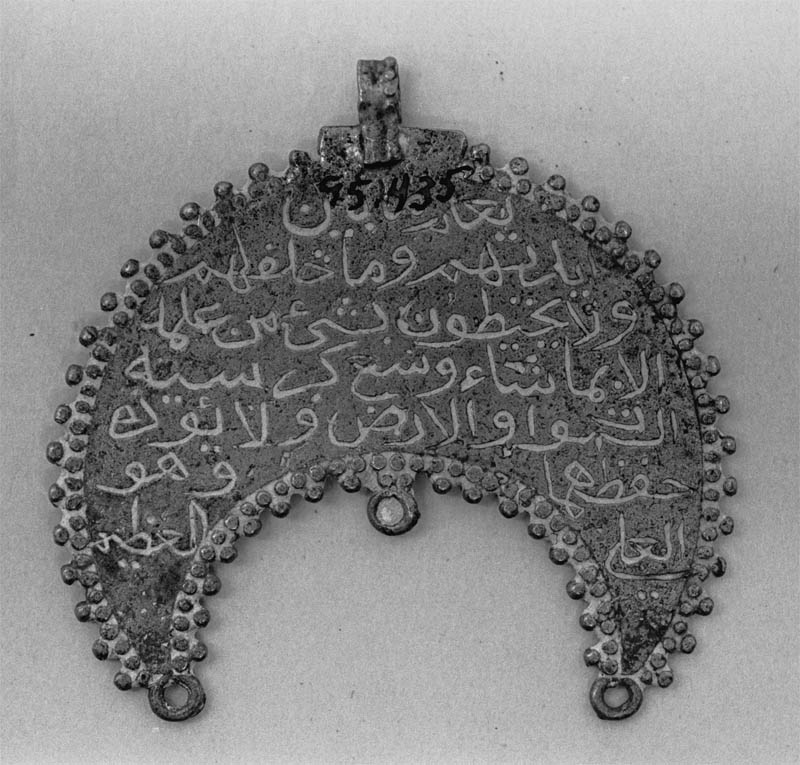 95.1435
يعلم ما بين
ايديهم وما خلفهم
ولا يحيطون بشئ من علمه
الا بما شاء وسع كرسيه
السموات والارض ولا يئوده
حفظهما وهو
العلي العظيم